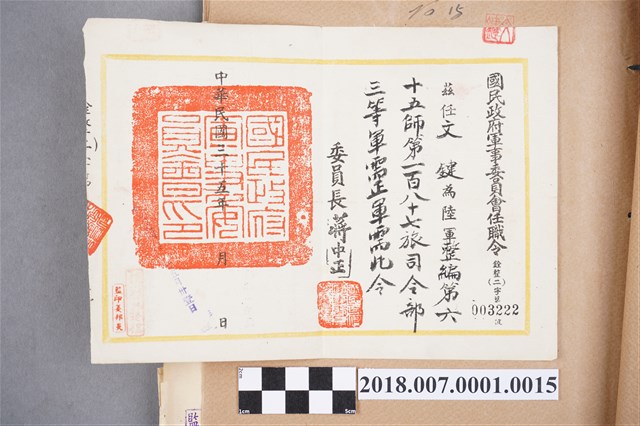 國民政府軍事委員會任職令
銓整(二)字第003222號
茲任文 鍵為陸軍整編第六
十五師第一百八十七旅司令部
三等軍需正軍需此令
委員長 蔣中正
國民政府軍事委員會印
中華民國三十五年 月 日
監印姜邦奐
10 15
2cm
1cm
5cm
2018.007.0001.0015